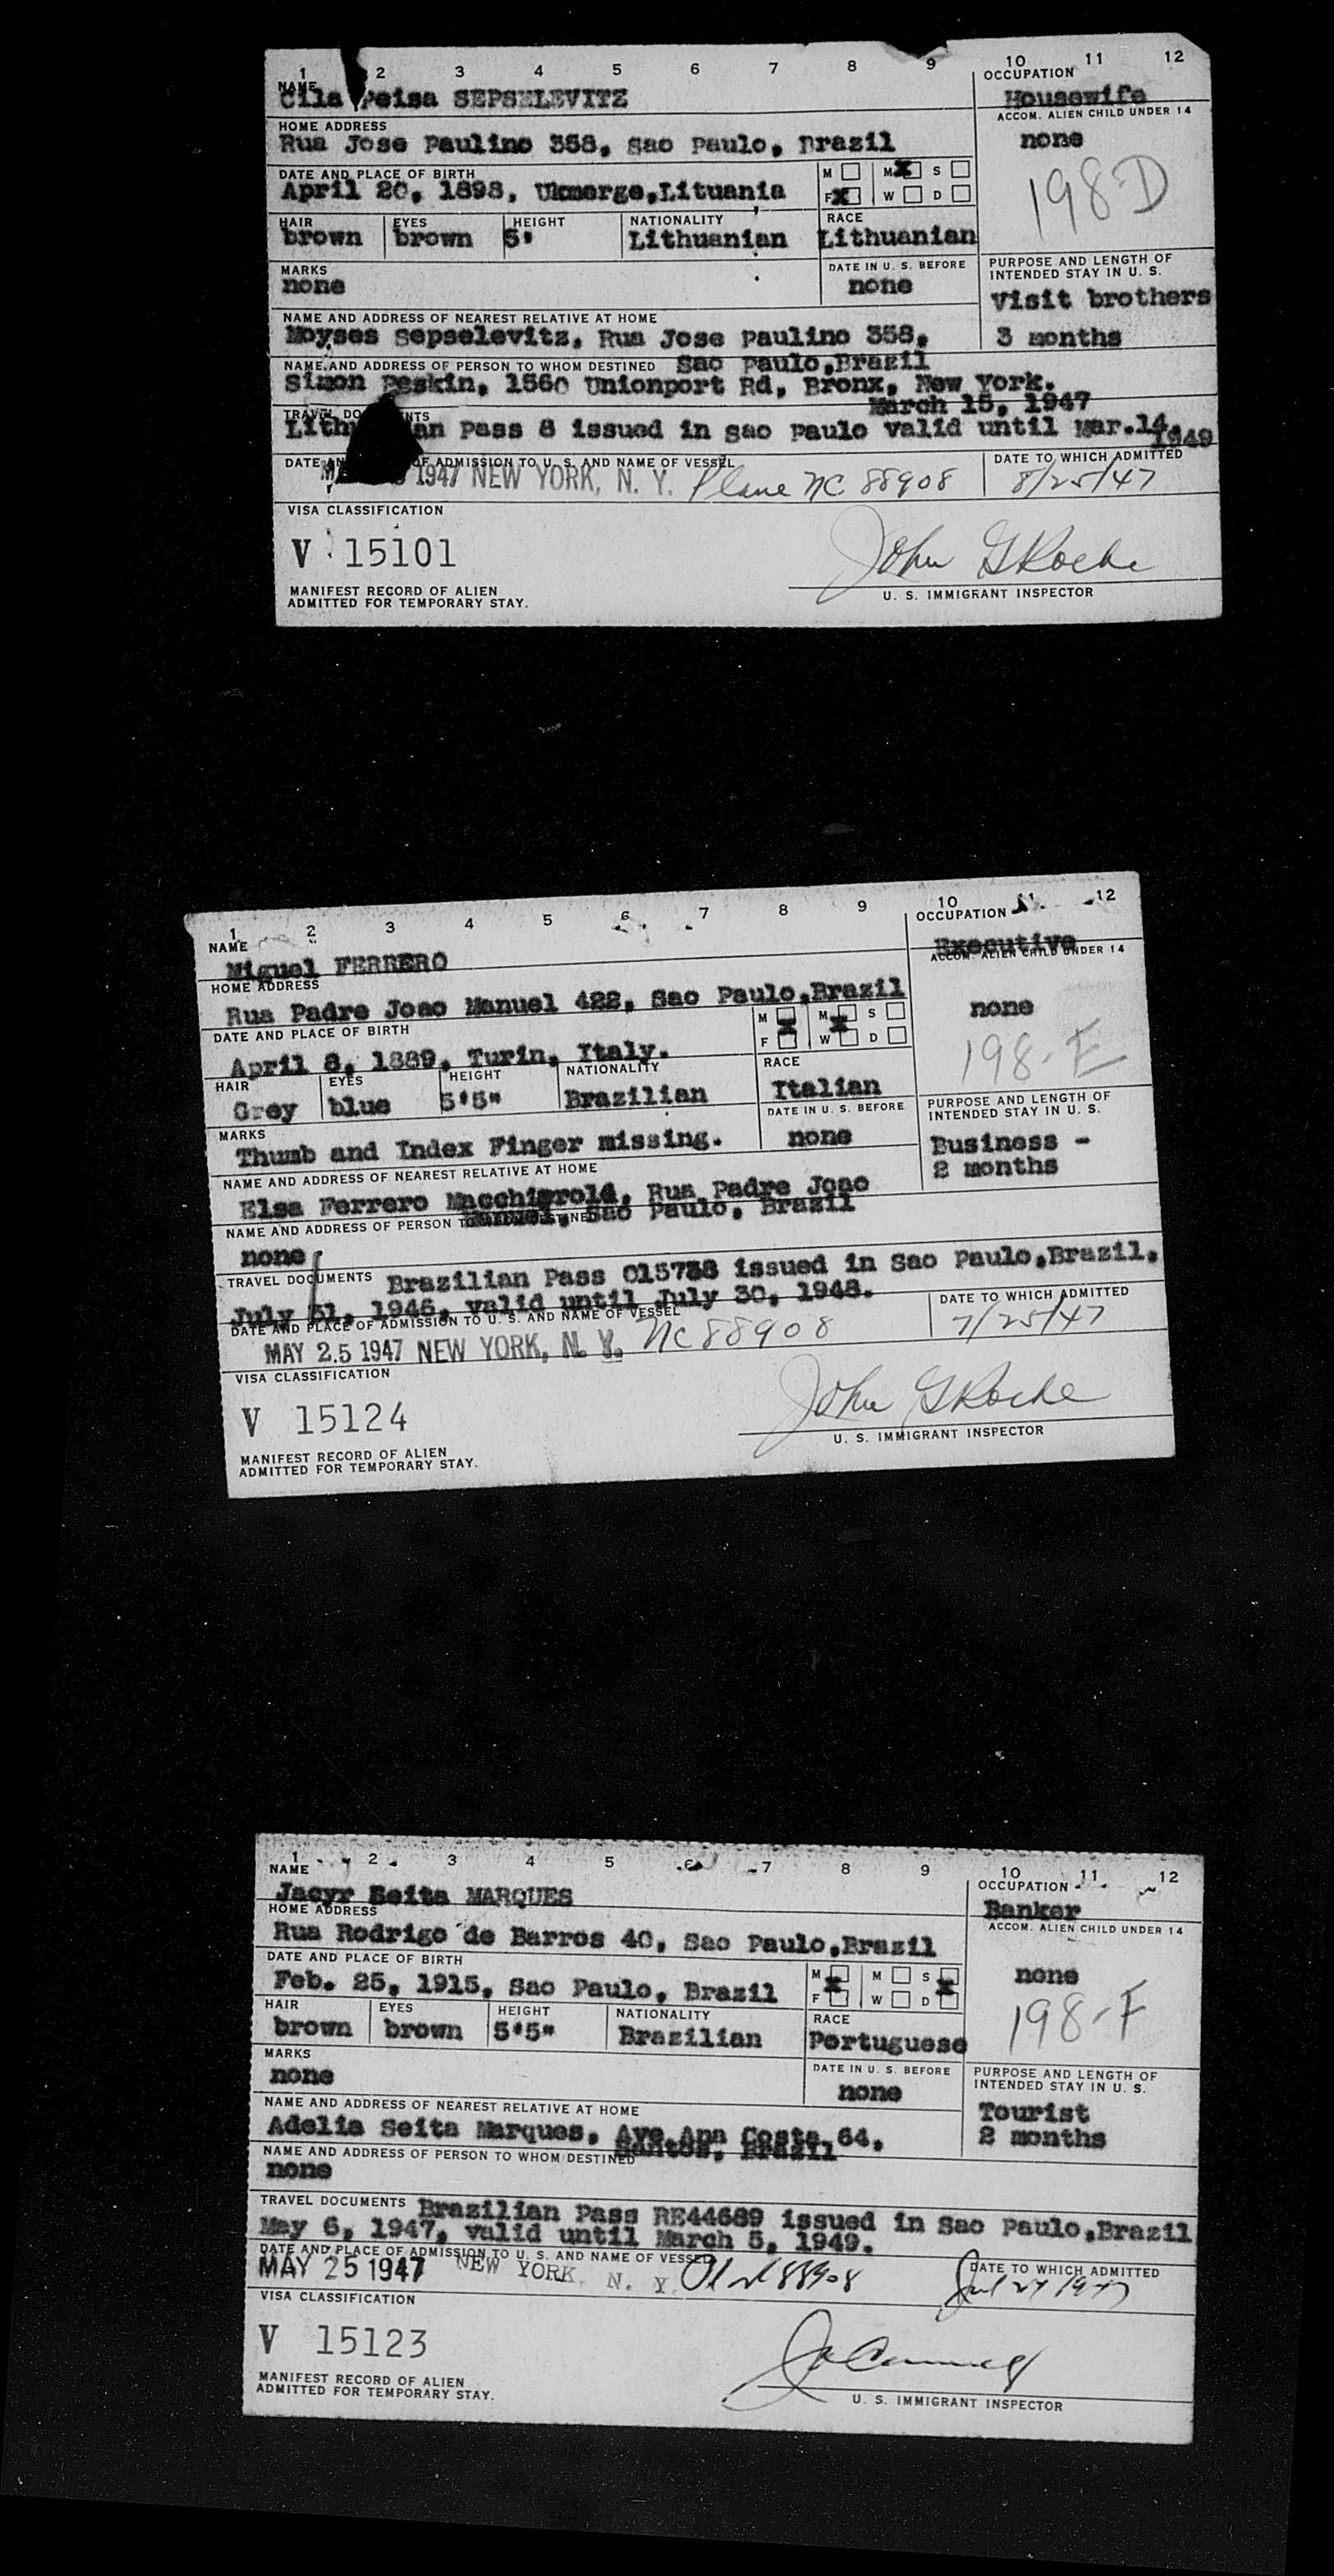 1 2 3 4 5 6 7 8 9 10 11 12
NAME OCCUPATION
Cila Peisa SEPSELEVITZ Housewife
HOME ADDRESS ACCOM. ALIEN CHILD UNDER 14
Rua Jose Paulino 358, Sao Paulo, Brazil none
DATE AND PLACE OF BIRTH M M X S
April 20, 1898, Ukmerge,Lituania F X W D
198-D
HAIR EYES HEIGHT NATIONALITY RACE
brown brown 5' Lithuanian Lithuanian
MARKS DATE IN U. S. BEFORE PURPOSE AND LENGTH OF
INTENDED STAY IN U. S.
none none Visit brothers
NAME AND ADDRESS OF NEAREST RELATIVE AT HOME
Moyses Sepselevitz, Rua Jose Paulino 358, 3 months
NAME AND ADDRESS OF PERSON TO WHOM DESTINED Sao Paulo,Brazil
Simon Peskin, 1560 Unionport Rd, Bronx, New York.
March 15, 1947
TRAVEL DO NTS
Lith an Pass 8 issued in Sao Paulo valid until Mar.14,
1949
DATE AN OF ADMISSION TO U. S. AND NAME OF VESSEL DATE TO WHICH ADMITTED
1947 NEW YORK, N. Y. Plane NC 88908 8/25/47
VISA CLASSIFICATION
V 15101 John G Roche
MANIFEST RECORD OF ALIEN
ADMITTED FOR TEMPORARY STAY. U. S. IMMIGRANT INSPECTOR
1 2 3 4 5 6 7 8 9 10 11 12
NAME OCCUPATION
Miguel FERRERO Executive
HOME ADDRESS ACCOM. ALIEN CHILD UNDER 14
Rua Padre Joao Manuel 422, Sao Paulo,Brazil none
DATE AND PLACE OF BIRTH M X M X S
April 8, 1889, Turin, Italy. F W D
198-E
HAIR EYES HEIGHT NATIONALITY RACE
Grey blue 5'5" Brazilian Italian
MARKS DATE IN U. S. BEFORE PURPOSE AND LENGTH OF
INTENDED STAY IN U. S.
Thumb and Index Finger missing. none Business -
2 months
NAME AND ADDRESS OF NEAREST RELATIVE AT HOME
Elsa Ferrero Rua Padre Joao
NAME AND ADDRESS OF PERSON TO WHOM DESTINED Manuel, Sao Paulo, Brazil
none
TRAVEL DOCUMENTS Brazilian Pass 015738 issued in Sao Paulo,Brazil,
July 31, 1946, valid until July 30, 1948.
DATE AND PLACE OF ADMISSION TO U. S. AND NAME OF VESSEL DATE TO WHICH ADMITTED
MAY 25 1947 NEW YORK, N. Y. NC 88908 7/25/47
VISA CLASSIFICATION
V 15124 John G Roche
MANIFEST RECORD OF ALIEN
ADMITTED FOR TEMPORARY STAY. U. S. IMMIGRANT INSPECTOR
1 2 3 4 5 6 7 8 9 10 11 12
NAME OCCUPATION
Jacyr Seita MARQUES Banker
HOME ADDRESS ACCOM. ALIEN CHILD UNDER 14
Rua Rodrigo de Barros 40, Sao Paulo,Brazil
DATE AND PLACE OF BIRTH M X M S X none
Feb. 25, 1915, Sao Paulo, Brazil F W D
198-F
HAIR EYES HEIGHT NATIONALITY RACE
brown brown 5'5" Brazilian Portuguese
MARKS DATE IN U. S. BEFORE PURPOSE AND LENGTH OF
INTENDED STAY IN U. S.
none none Tourist
2 months
NAME AND ADDRESS OF NEAREST RELATIVE AT HOME
Adelia Seita Marques, Ave Ana Costa 64,
NAME AND ADDRESS OF PERSON TO WHOM DESTINED Santos, Brazil
none
TRAVEL DOCUMENTS Brazilian Pass RE44689 issued in Sao Paulo,Brazil
May 6, 1947, valid until March 5, 1949.
DATE AND PLACE OF ADMISSION TO U. S. AND NAME OF VESSEL DATE TO WHICH ADMITTED
MAY 25 1947 NEW YORK, N. Y. 88908 Jul 24 1947
VISA CLASSIFICATION
V 15123
MANIFEST RECORD OF ALIEN
ADMITTED FOR TEMPORARY STAY. U. S. IMMIGRANT INSPECTOR